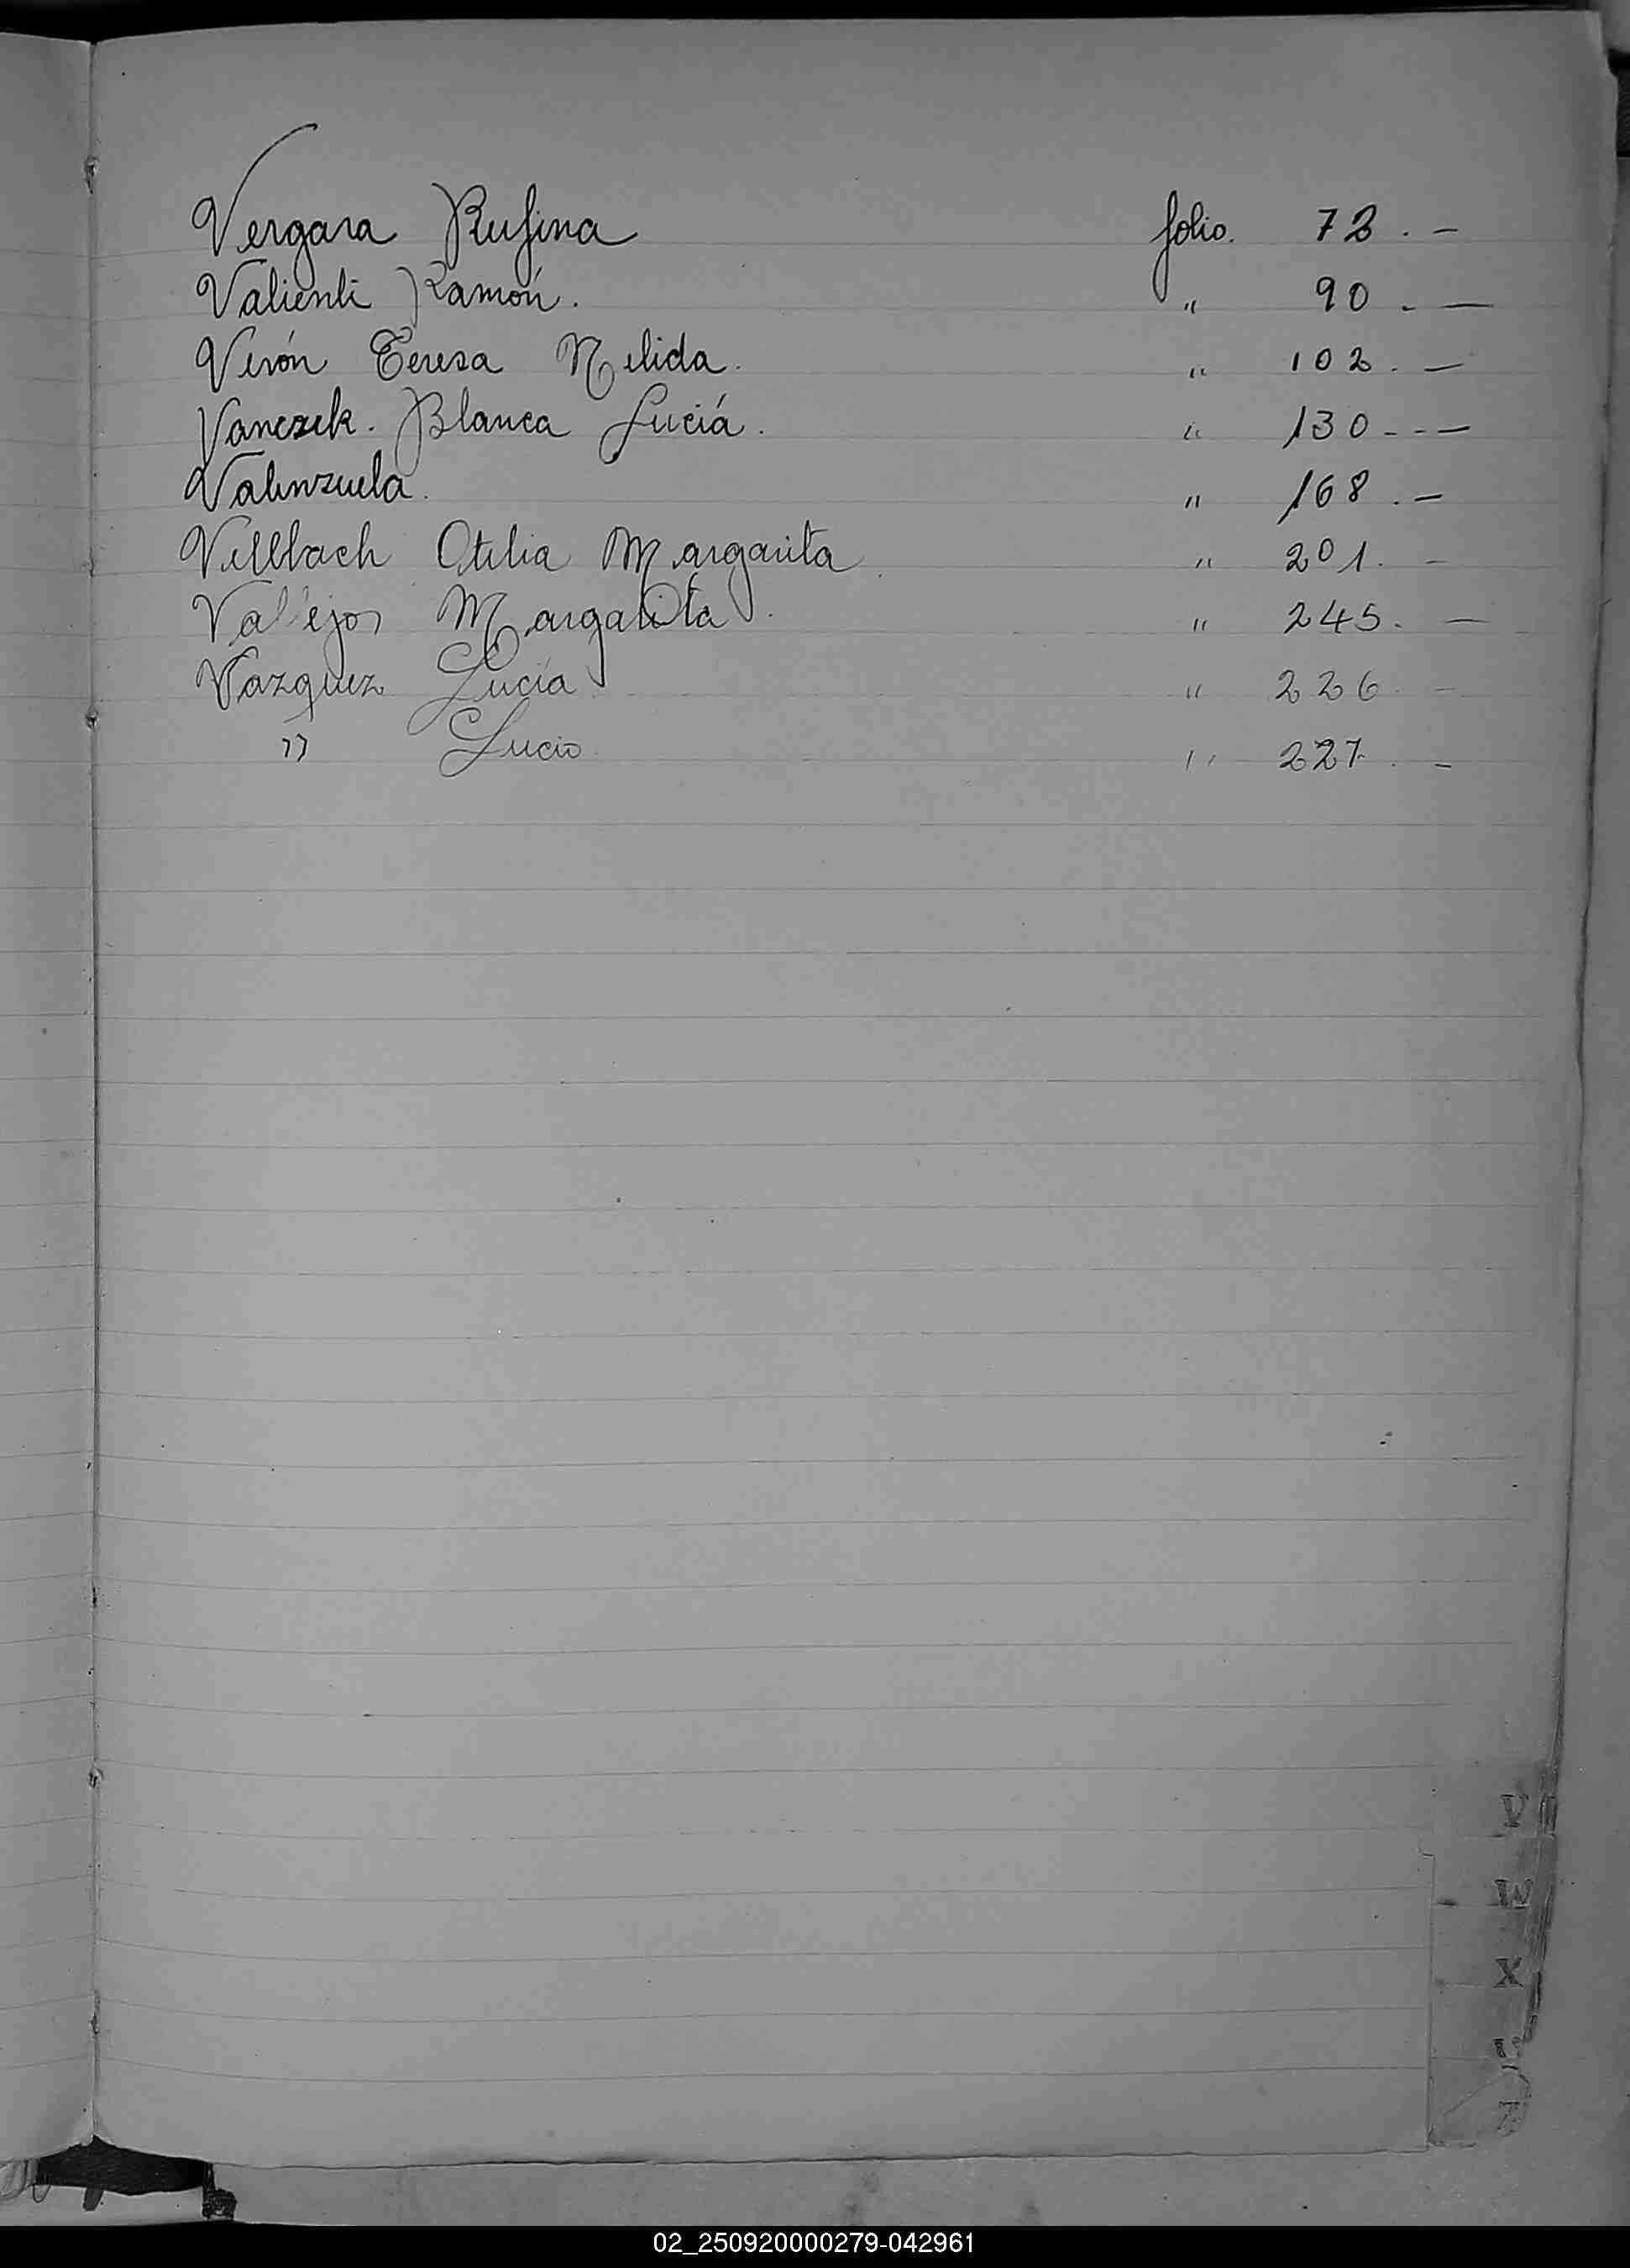 Vergara Rufina folio. 72. —
Valiente Ramón. " 90. —
Verón Teresa Nelida. " 102. —
Vanczek. Blanca Lucía. " 130 - - —
Valenzuela. " 168. —
Vellbach Otilia Margarita. " 201. —
Vallejos Margarita. " 245. —
Vazquez Lucía " 226. —
" Lucio. " 227. —
V
W
X
02_250920000279-042961